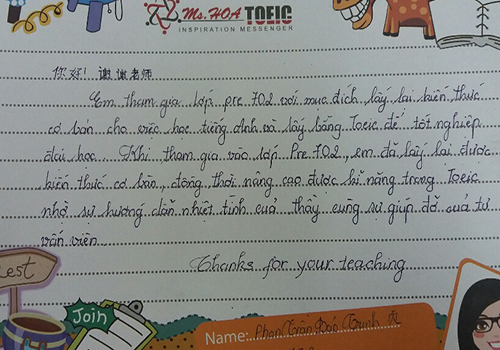 Ms. HOA TOEIC
INSPIRATION MESSENGER
你好! 谢谢老师
Em tham gia lớp pre 702 với mục đích lấy lại kiến thức
cơ bản cho việc học tiếng Anh và lấy bằng Toeic để tốt nghiệp
đại học. Khi tham gia vào lớp Pre 702, em đã lấy lại được
kiến thức cơ bản, đồng thời nâng cao được kĩ năng trong Toeic
nhờ sự hướng dẫn nhiệt tình của thầy cùng sự giúp đỡ của tư
vấn viên.
Thanks for your teaching
est
Join
Name: Phan Trần Đào Trinh